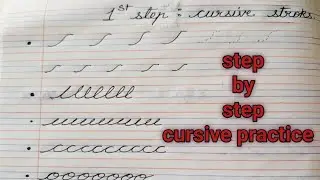 1st step : cursive stroks.
step
by
step
cursive practice